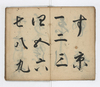 す京
一二三
四五六
七八九